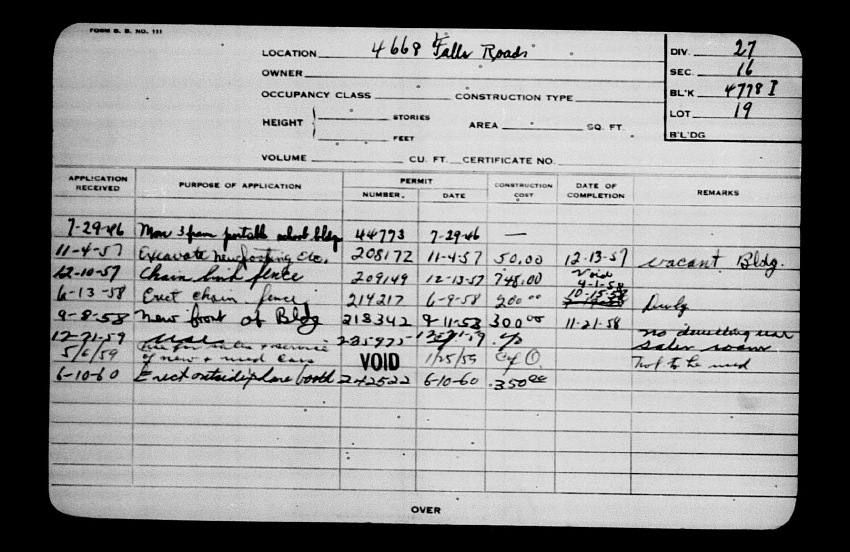 FORM B. B. NO. 111
LOCATION 4668 Falls Roads
OWNER
OCCUPANCY CLASS CONSTRUCTION TYPE
HEIGHT STORIES FEET AREA SQ. FT.
VOLUME CU. FT. CERTIFICATE NO.
DIV. 27
SEC. 16
BL'K 4778 I
LOT 19
B'L'DG
APPLICATION RECEIVED PURPOSE OF APPLICATION PERMIT NUMBER DATE CONSTRUCTION COST DATE OF COMPLETION REMARKS
7-29-46 Move 3 portable school bldg 44773 7-29-46 —
11-4-57 Excavate new footing Etc. 208172 11-4-57 50.00 12-13-57 vacant Bldg.
12-10-57 Chain link fence 209149 12-13-57 748.00 Void 4-1-58
6-13-58 Erect chain fence 214217 6-9-58 200 00 10-15-58 Dwlg
9-8-58 New front of Bldg 218342 9-11-58 300 00 11-21-58 no dwelling use
12-21-59 Use 235975 sales room
5/6/59 Use for sales + service of new + used cars VOID 1/25/59 C of O. Not to be used
6-10-60 Erect outside phone booth 242522 6-10-60 350 00
OVER